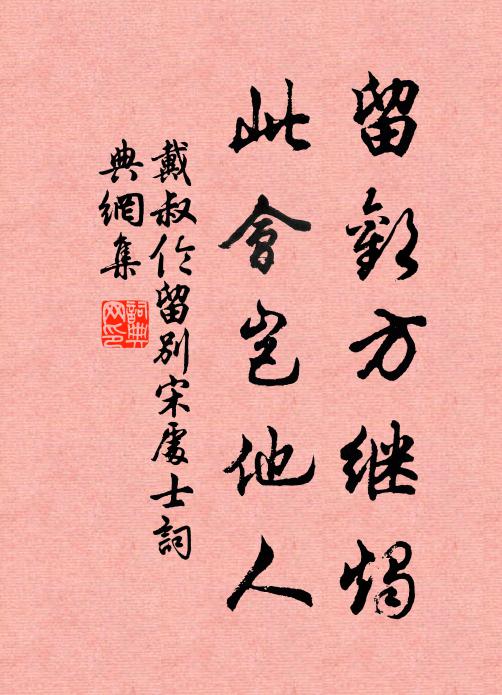 留歡方继燭
此會岂他人
戴叔伦留别宋處士詞
典網集
詞典网印